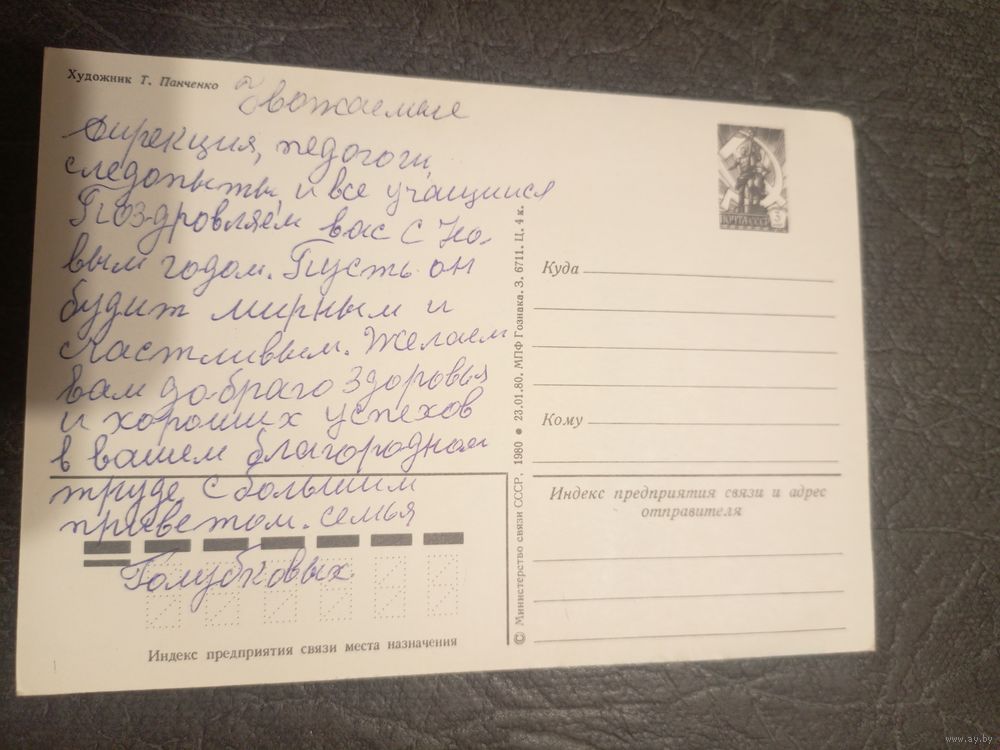 Художник Т. Панченко
Уважаемые
дирекция, педогоги,
следопыты, и все учащиися
Поздровляем вас с Но-
вым годом. Пусть он
будит мирным и
счастливым. Желаем
вам до-браго здоровья
и хороших успехов
в вашем благородном
труде. С большим
приветом. семья
Голубковых.
Индекс предприятия связи места назначения
© Министерство связи СССР. 1980 • 23.01.80. МПФ Гознака. З. 6711. Ц. 4 к.
ПОЧТА СССР 3
Куда
Кому
Индекс предприятия связи и адрес
отправителя
www.ay.by